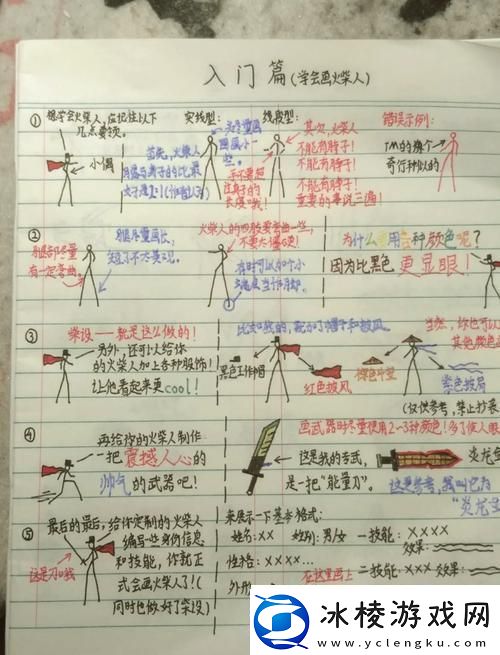 入门篇(学会画火柴人)
① 想学会火柴人,应记住以下
几点要领。
小偶
首先,火柴人
实线型:
线段型:
其次,火柴人
不能有脖子!
不能有脖子!
不能有脖子!
重要的事说三遍!
手不要超
过身子的
长度哦!
错误示例:
TM的像个
奇行种似的
②
腿部尽量
有一定弯曲。
腿尽量画长,
短了不太美观。
火柴人的四肢要弯曲一些,
不要太僵硬!
有时可以加个小
当作脚。
为什么要用三种颜色呢?
因为比黑色更显眼!
③ 柴设——就是这么做的!
另外,还可以给你
的火柴人加上各种服饰!
让他看起来更cool!
比如我的,就加了帽子和披风。
黑色工作帽
红色披风
当然,你也可以
其他颜色
棕色斗笠
紫色披肩
(仅供参考,禁止抄袭
④ 再给你的火柴人制作
一把震撼人心的
帅气的武器吧!
画武器时尽量使用2~3种颜色!多了催人眼
这是我的专武,
是一把“能量刀”。
炎龙剑
这是参考,我叫它为
“炎龙全
⑤ 最后的最后,给你定制的火柴人
编写一些身份信息
和技能,你就正
式会画火柴人了!(
同时也做好了柴设)
这是刀哦
来展示一下基本格式:
姓名:XX 性别:男/女 一技能:XXXX
效果:
性格:XXXX....
在这里画上
二技能:XX 效果:
外形:
冰棱游戏网
www.yclengku.com